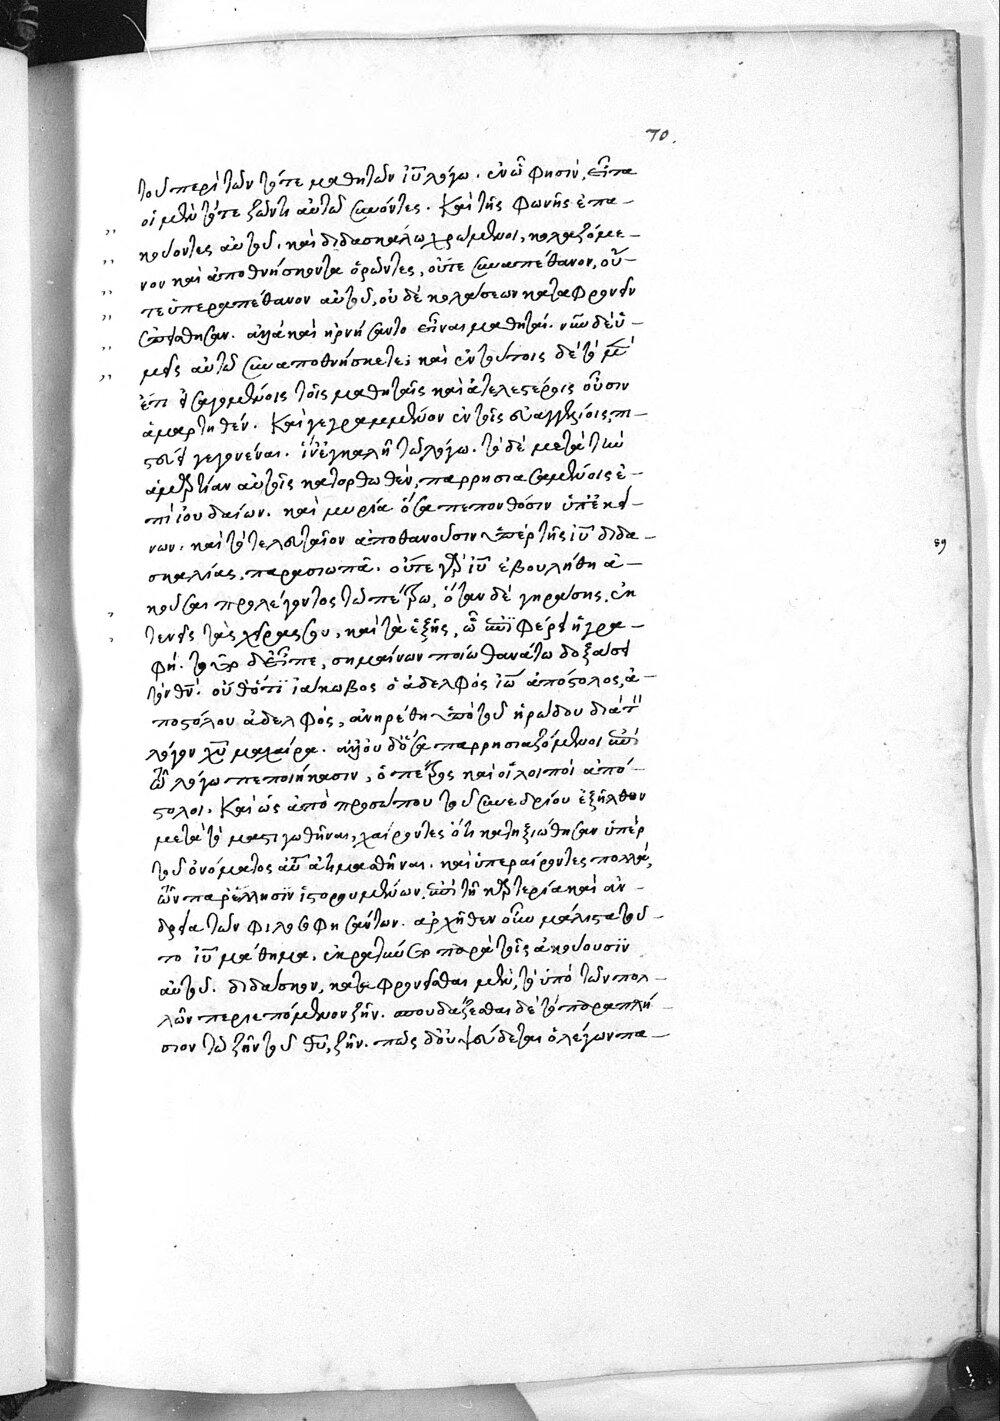 70.
τοῦ περὶ τῶν τότε μαθητῶν ἰῦ λόγω. ἐν ὧ φησὶν, εἶτα
οἱ μὲν τότε ζῶντι αὐτῶ συνόντες. Καὶ τῆς φωνῆς ἐπα-
κούοντες αὐτοῦ. καὶ διδασκάλω χρώμενοι, κολαζόμε-
νον καὶ ἀποθνήσκοντα ὁρῶντες, οὔτε συναπέθανον, οὔ-
τε ὑπεραπέθανον αὐτοῦ, οὐδὲ κολάσεων καταφρονεῖν
ἐπείσθησαν. ἀλλὰ καὶ ἠρνήσαντο εἶναι μαθηταί. νῦν δὲ ὑ-
μεῖς αὐτῶ συναποθνήσκετε; καὶ ἐν τούτοις δὲ τὸ μὲν
ἔτι εἰσαγομένοις τοῖς μαθηταῖς καὶ ἀτελεστέροις οὖσιν
ἁμαρτηθέν. Καὶ γεγραμμένον ἐν τοῖς εὐαγγελίοις, πι-
στεύει γεγονέναι. ἵν' ἐγκαλῆ τῶ λόγω. τὸ δὲ μετὰ τὴν
ἁμαρτίαν αὐτοῖς κατορθωθέν, παρρησιασαμένοις ἐ-
πὶ ἰουδαίων. καὶ μυρία ὅσα πεπονθόσιν ὑπ' ἐκεί-
νων. καὶ τὸ τελευταῖον ἀποθανοῦσιν ὑπὲρ τῆς ἰῦ διδα-
σκαλίας, παρασιωπᾶ. οὔτε γὰρ ἰῦ ἐβουλήθη ἀ-
κοῦσαι προλέγοντος τῶ πέτρω, ὅταν δὲ γηράσης, ἐκ
τενεῖς τὰς χεῖρας σου, καὶ τὰ ἑξῆς, ὧ ἐπιφέρει ἡ γρα-
φή. τοῦτο δὲ εἶπε, σημαίνων ποίω θανάτω δοξάσει
τὸν θν. οὔθ' ὅτι ἰάκωβος ὁ ἀδελφὸς ἰω ἀπόστολος, ἀ-
ποστόλου ἀδελφός, ἀνηρέθη ὑπὸ τοῦ ἡρώδου διὰ τὸν
λόγον χυ μαχαίρα. ἀλλ' οὐδ' ὅσα παρρησιαζόμενοι ἐπὶ
τῶ λόγω πεποιήκασιν, ὁ πέτρος καὶ οἱ λοιποὶ ἀπό-
στολοι. Καὶ ὡς ἀπὸ προσώπου τοῦ συνεδρίου ἐξῆλθον
μετὰ τὸ μαστιγωθῆναι, χαίροντες ὅτι κατηξιώθησαν ὑπὲρ
τοῦ ὀνόματος αὐτοῦ ἀτιμασθῆναι. καὶ ὑπεραίροντες πολλὰ,
τῶν παρ' ἕλλησιν ἱστορουμένων, ἐπὶ τῆ καρτερία καὶ ἀν-
δρεία τῶν φιλοσοφησάντων. ἀρχῆθεν οὖν μάλιστα τοῦ-
το ἰῦ μάθημα. ἐκρατύνετο παρὰ τοῖς ἀκούουσιν
αὐτοῦ. διδάσκον, καταφρονεῖσθαι μὲν, τὸ ὑπὸ τῶν πολ-
λῶν περιεπόμενον ζῆν. σπουδάζεσθαι δὲ τὸ παραπλή-
σιον τῶ ζῆν τοῦ θυ, ζῆν. πῶς δ' οὐ ψεύδεται ὁ λέγων πα-
89